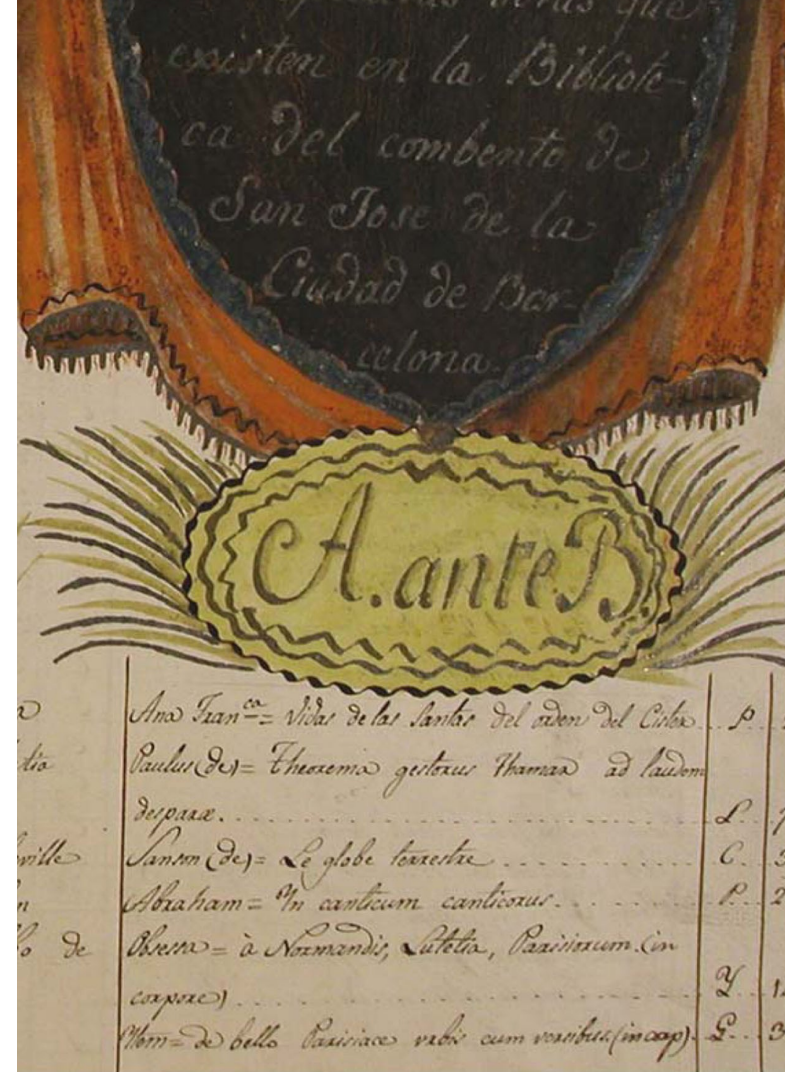 existen en la Bibliote-
ca del combento de
San Jose de la
Ciudad de Bar-
celona.
A. ante B.
Ana Fran.ca = Vidas de las Santas del orden del Cister P
Paulus (de) = Theorema gestorus Thamar ad laudem
deiparæ. L
ville Sanson (de) = Le globe terrestre C 3
Abraham = In canticum canticorus P 2
de Obsessa = à Normandis, Lutetia, Parisiorum. (in
corpore) Y 1
Ytem = de bello Parisiace urbis cum versibus (in corp) G 3